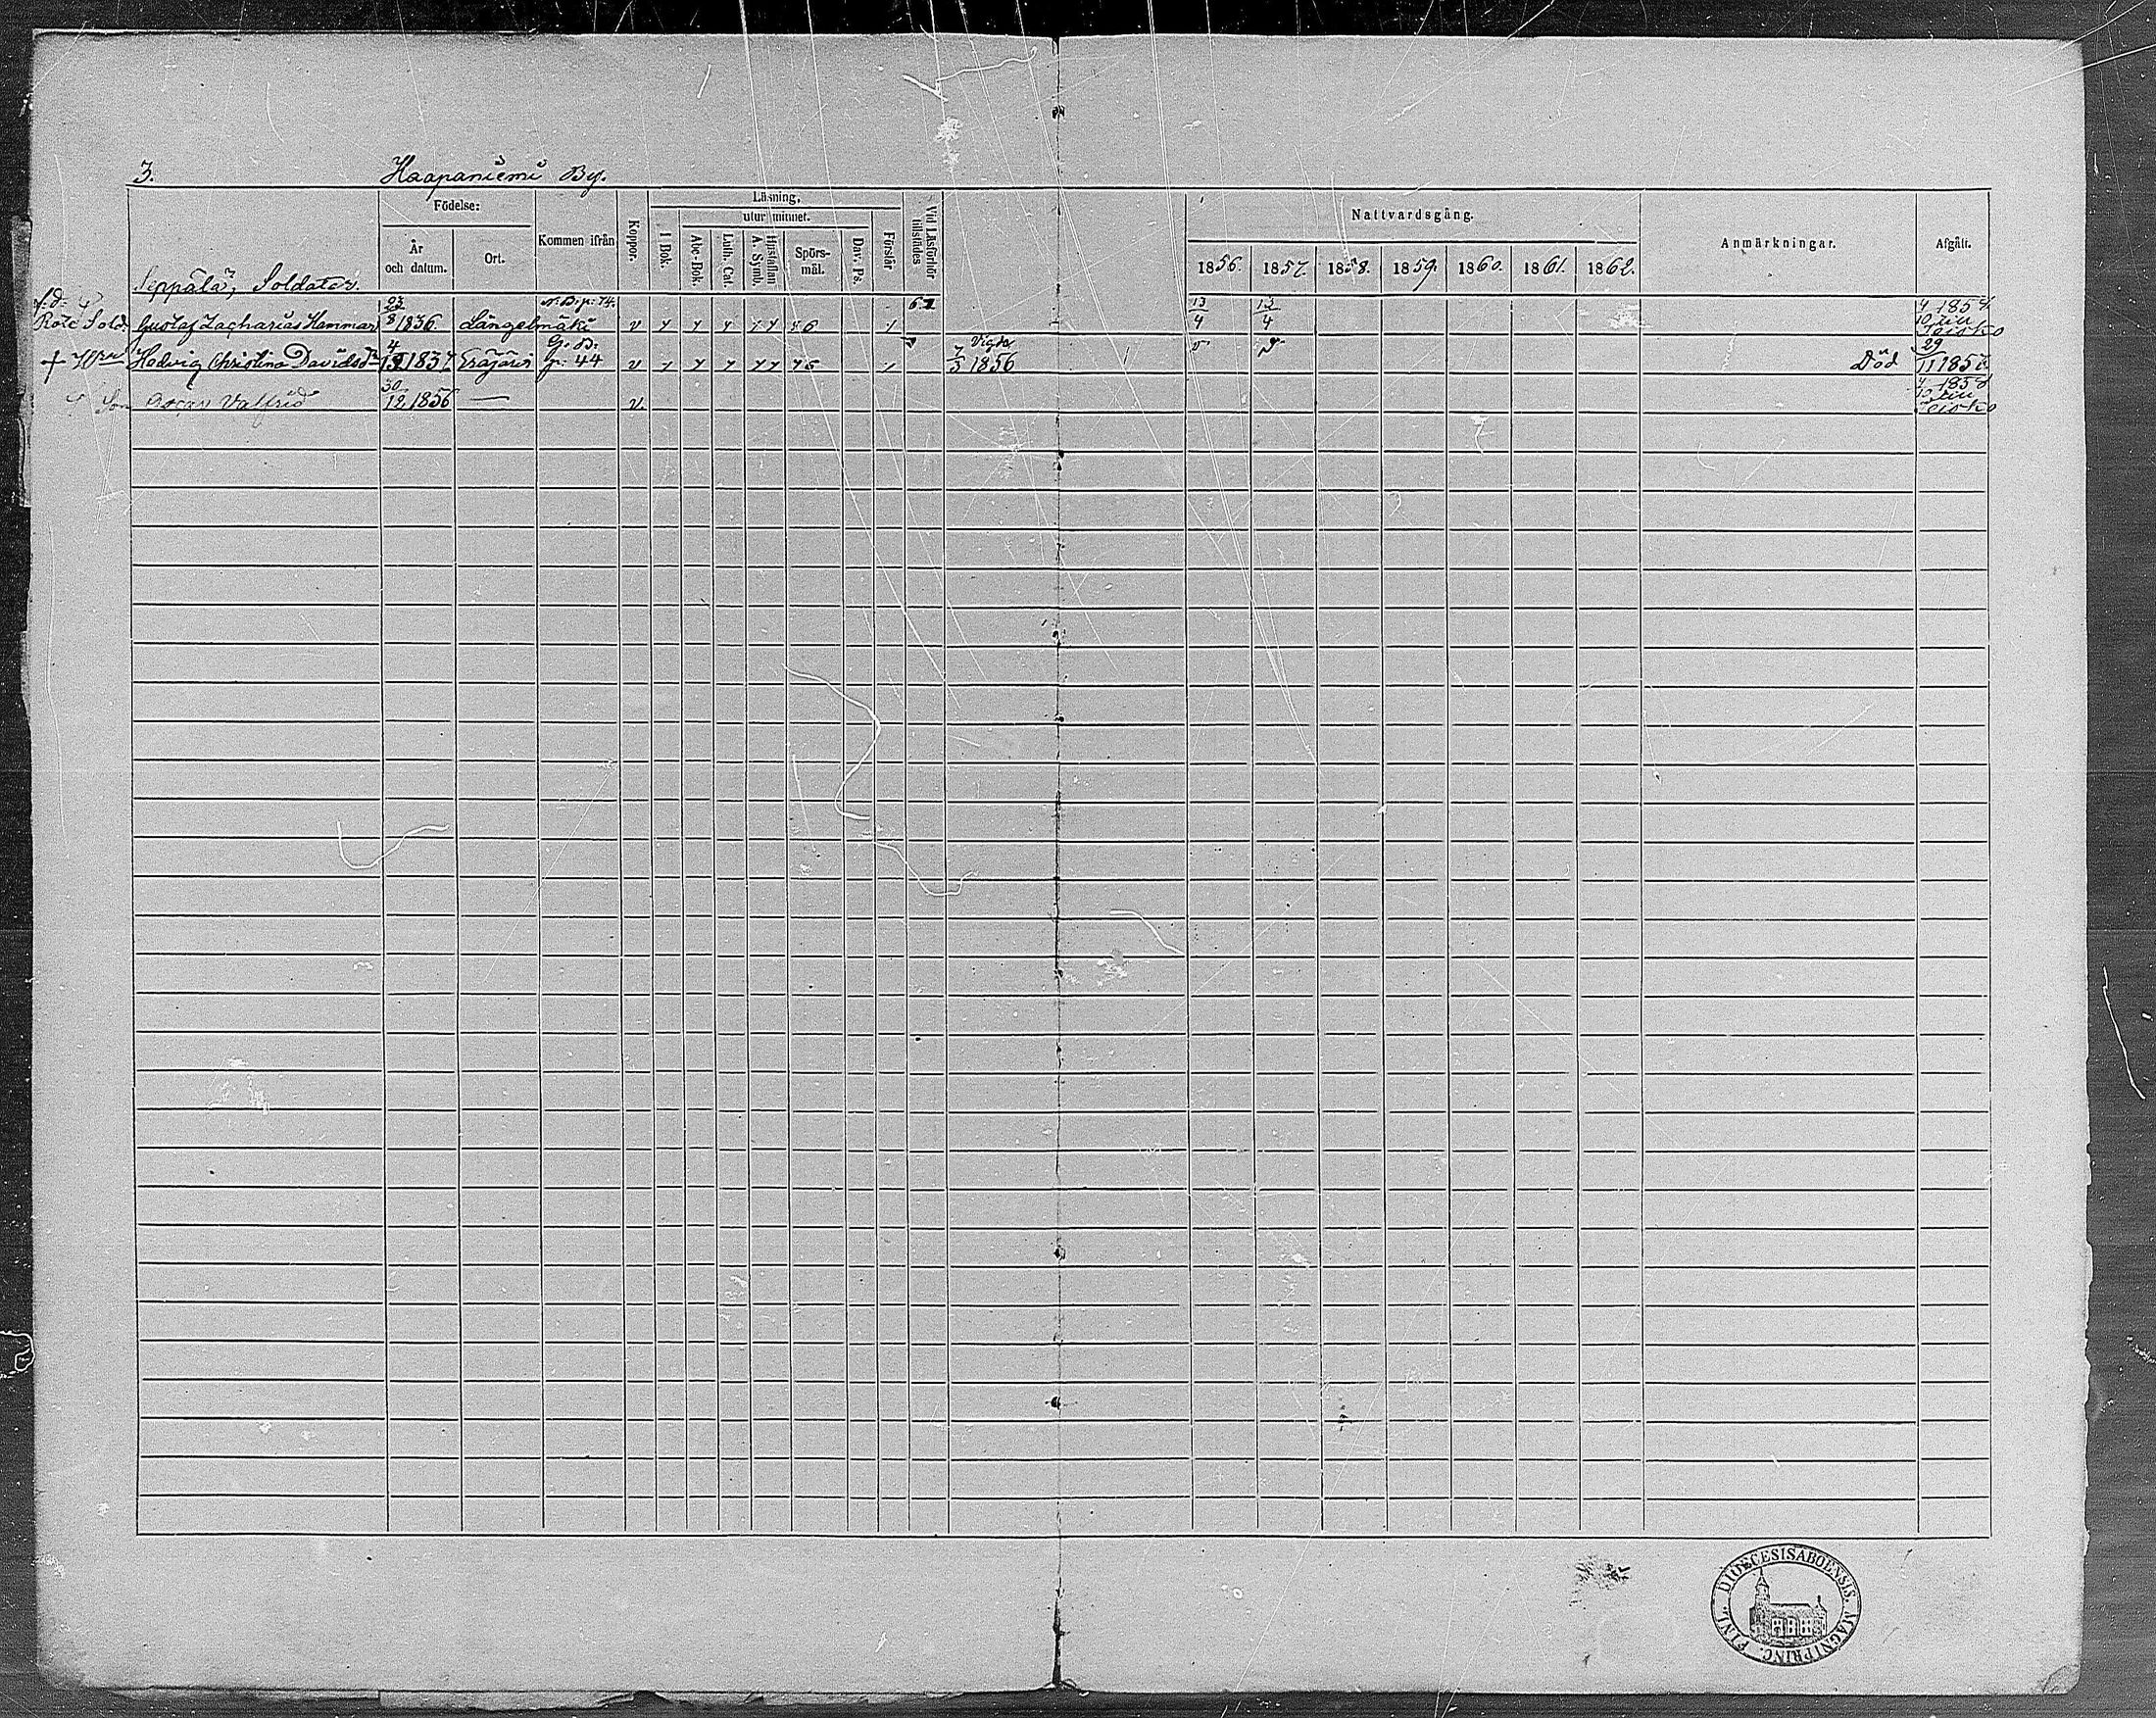 3. Haapaniemi By.
Födelse:
År och datum.
Ort.
Kommen ifrån
Koppor.
Läsning,
I Bok.
utur minnet.
Abc-Bok.
Luth. Cat.
Hustaflan A. Symb.
Spörsmål.
Dav. Ps.
Förstår
Vid Läsförhör tillstädes
Nattvardsgång.
1856. 1857. 1858. 1859. 1860. 1861. 1862.
Anmärkningar.
Afgått.
Seppälä, Soldater.
f.d. Rote Sold. Gustaf Zacharias Hammar 23/8 1836. Längelmäki N. B. p: 74. v 6.2 13/4 13/4 4/10 1858 till Teisko
+ Hu Hedvig Christina Davidsdr 4 1837 Eräjärvi G. B. p: 44 v Vigde 7/5 1856 Död 29/11 1857
Son Oscar Valfrid 30/12 1856 — v. 4/10 1858 till Teisko
DIOECESIS ABOENSIS. MAGNI PRINC. FINL.